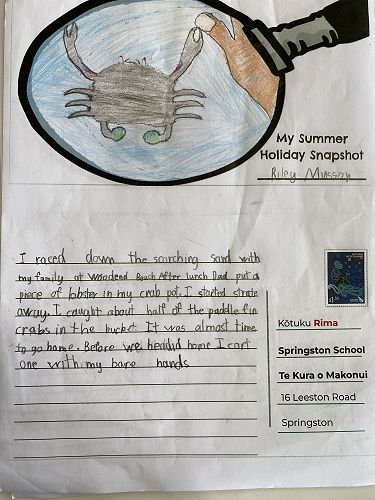 My Summer
Holiday Snapshot
Riley Musson
I raced down the scorching sand with
my family at Woodend Beach After lunch Dad put a
piece of lobster in my crab pot. I started strate
away. I caught about half of the paddle fin
crabs in the bucket It was almost time
to go home. Before we headid home I cort
one with my bare hands
Kōtuku Rima
Springston School
Te Kura o Makonui
16 Leeston Road
Springston